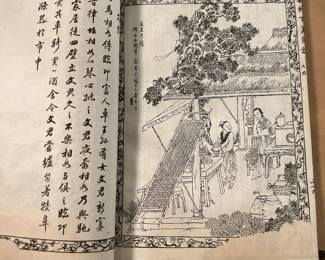 馬相如傳臨卭富人卓王孫有女文君新寡
音律相如以琴心挑之文君夜奔相如乃與馳
家居徒四壁立文君久之不樂相如與俱之臨卭
其車騎買一酒舍令文君當壚自著犢鼻
滌器於市中